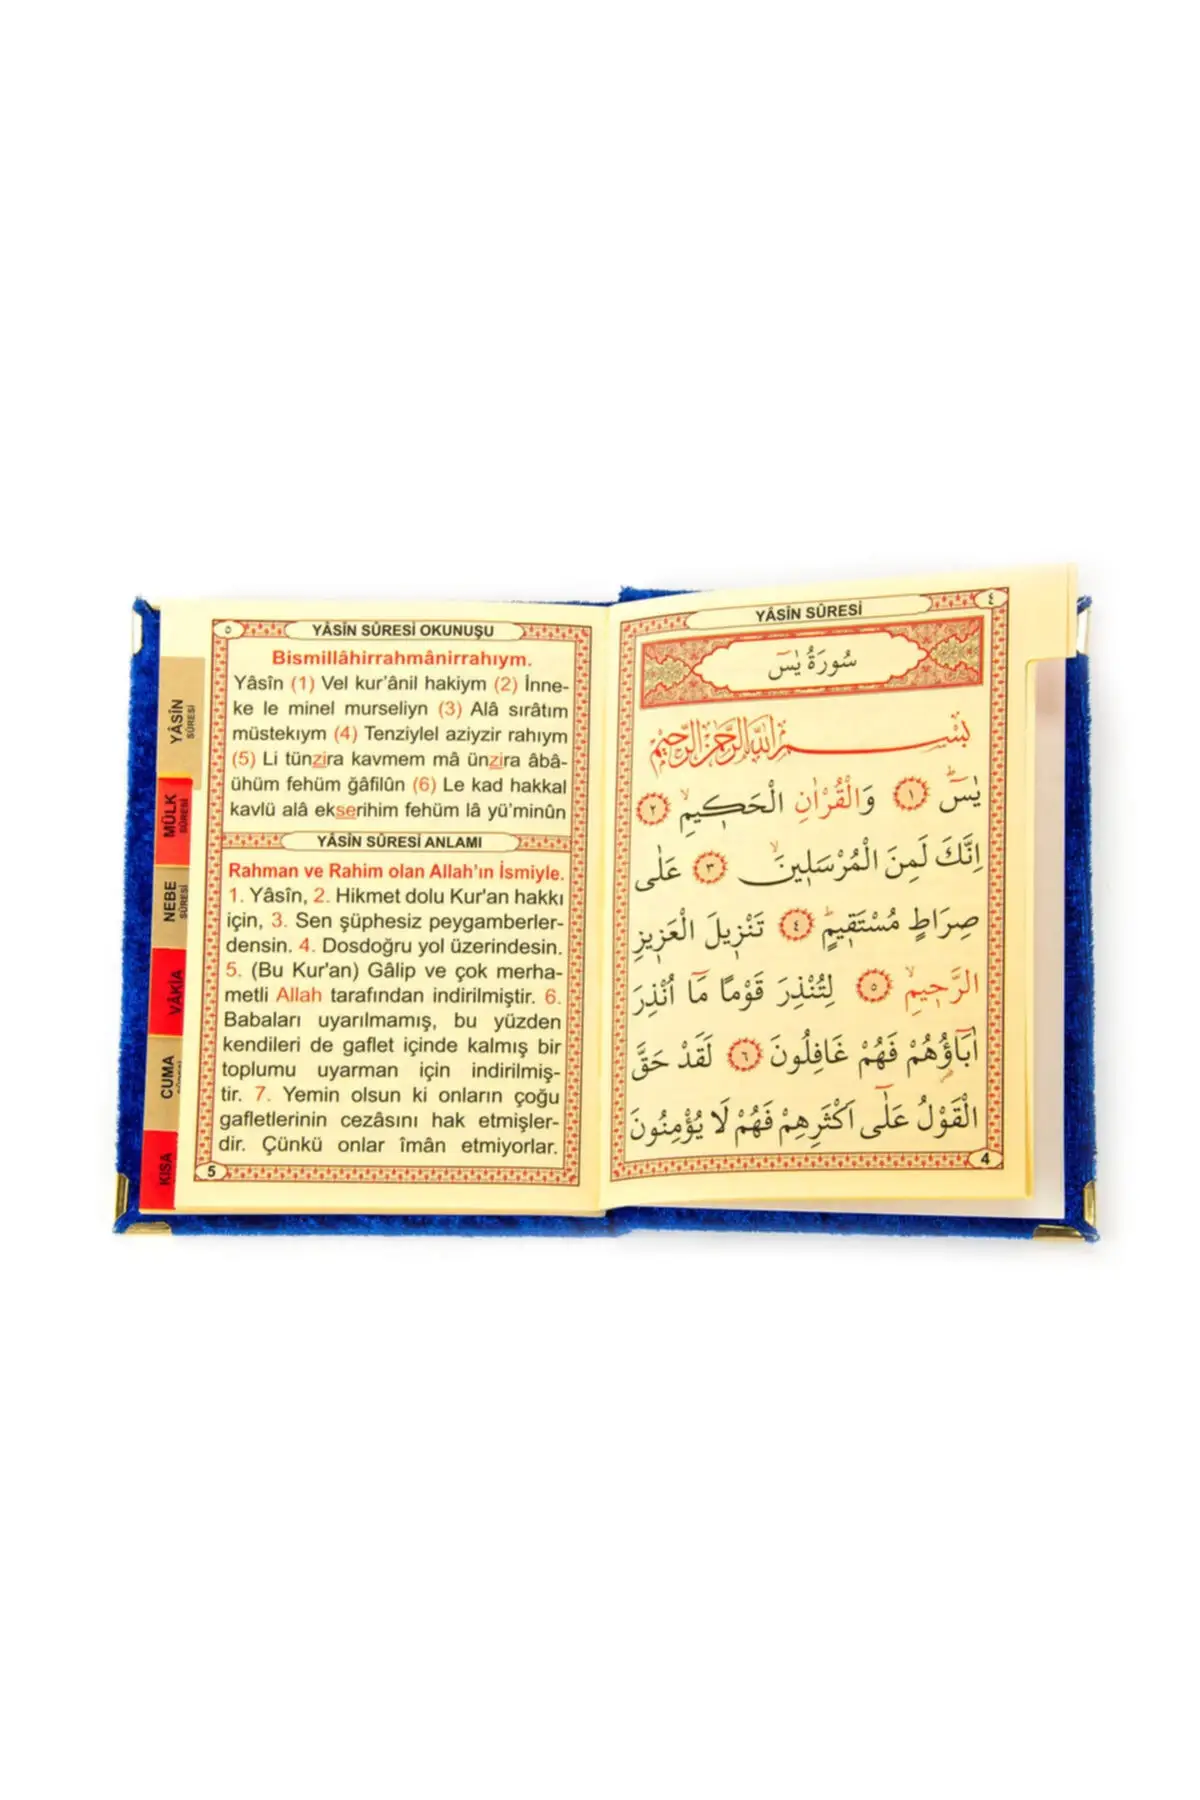 YÂSİN SÛRESİ
٤
سُورَةُ يٰسٓ
بِسْــــمِ اللّٰهِ الرَّحْمٰنِ الرَّحٖيمِ
يٰسٓۜ ﴿١﴾ وَالْقُرْاٰنِ الْحَكٖيمِۙ ﴿٢﴾
اِنَّكَ لَمِنَ الْمُرْسَلٖينَۙ ﴿٣﴾ عَلٰى
صِرَاطٍ مُسْتَقٖيمٍۜ ﴿٤﴾ تَنْزٖيلَ الْعَزٖيزِ
الرَّحٖيمِۙ ﴿٥﴾ لِتُنْذِرَ قَوْمًا مَٓا اُنْذِرَ
اٰبَٓاؤُ۬هُمْ فَهُمْ غَافِلُونَ ﴿٦﴾ لَقَدْ حَقَّ
الْقَوْلُ عَلٰٓى اَكْثَرِهِمْ فَهُمْ لَا يُؤْمِنُونَ
4
٥
YÂSİN SÛRESİ OKUNUŞU
Bismillâhirrahmânirrahıym.
Yâsîn (1) Vel kur’ânil hakiym (2) İnne-
ke le minel murseliyn (3) Alâ sırâtım
müstekıym (4) Tenziylel aziyzir rahıym
(5) Li tünzira kavmem mâ ünzira âbâ-
ühüm fehüm ğâfilûn (6) Le kad hakkal
kavlü alâ ekserihim fehüm lâ yü’minûn
YÂSİN SÛRESİ ANLAMI
Rahman ve Rahim olan Allah’ın İsmiyle.
1. Yâsîn, 2. Hikmet dolu Kur'an hakkı
için, 3. Sen şüphesiz peygamberler-
densin. 4. Dosdoğru yol üzerindesin.
5. (Bu Kur'an) Gâlip ve çok merha-
metli Allah tarafından indirilmiştir. 6.
Babaları uyarılmamış, bu yüzden
kendileri de gaflet içinde kalmış bir
toplumu uyarman için indirilmiş-
tir. 7. Yemin olsun ki onların çoğu
gafletlerinin cezâsını hak etmişler-
dir. Çünkü onlar îmân etmiyorlar.
5
YÂSİN
SÛRESİ
MÜLK
SÛRESİ
NEBE
SÛRESİ
VÂKIA
CUMA
KISA